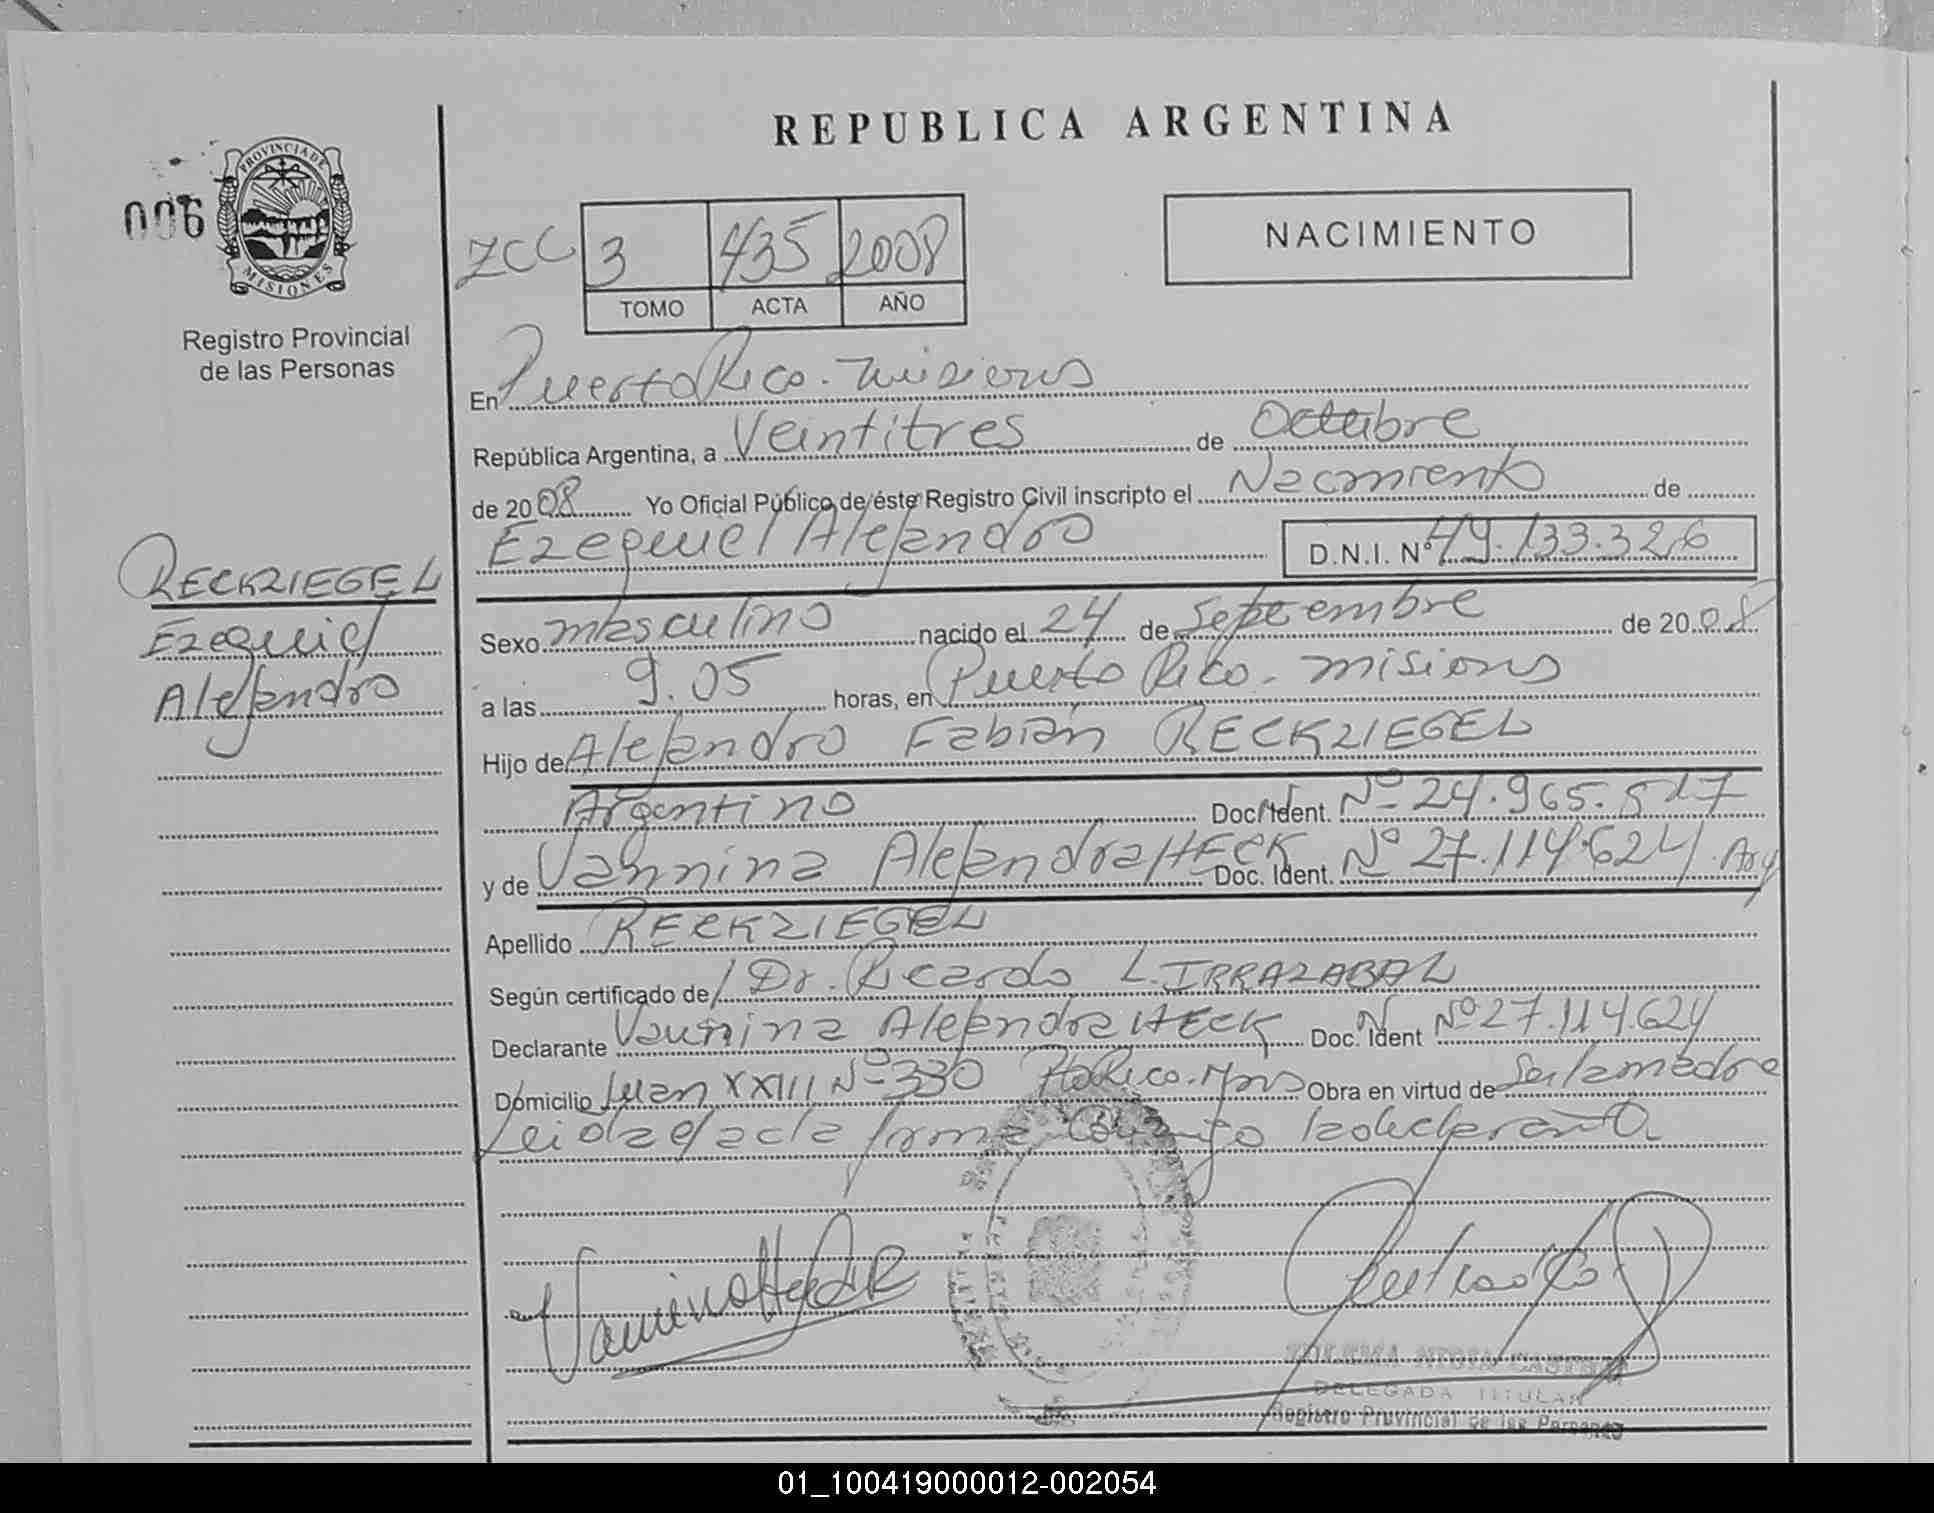 REPUBLICA ARGENTINA
PROVINCIA DE
MISIONES
006
Registro Provincial
de las Personas
ZCC 3 435 2008
TOMO ACTA AÑO
NACIMIENTO
En Puerto Rico. Misiones
República Argentina, a Veintitres de Octubre
de 2008 Yo Oficial Público de éste Registro Civil inscripto el Nacimiento de
Ezequiel Alejandro D.N.I. Nº 49.133.326
RECKZIEGEL
Ezequiel
Alejandro
Sexo masculino nacido el 24 de Septiembre de 2008
a las 9.05 horas, en Puerto Rico. Misiones
Hijo de Alejandro Fabián RECKZIEGEL
Argentino Doc. Ident. Nº 24.965.517
y de Vannina Alejandra HECK Doc. Ident. Nº 27.114.624 Arg
Apellido RECKZIEGEL
Según certificado de Dr. Ricardo L. IRRAZABAL
Declarante Vannina Alejandra HECK Doc. Ident Nº 27.114.624
Domicilio Juan XXIII Nº 330 Pto Rico. Mnes Obra en virtud de Ser la madre
Leida el acta firma conmigo la declarante
DELEGADA TITULAR
Registro Provincial de las Personas
01_100419000012-002054